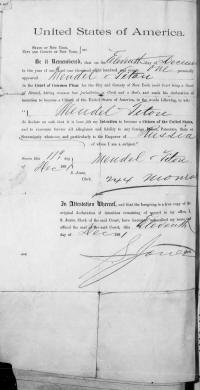 United States of America.
STATE OF NEW YORK,
CITY AND COUNTY OF NEW YORK, } ss:
Be it Remembered, that on the Eleventh day of December
in the year of our Lord one thousand eight hundred and personally
appeared Mendel Titon
in the Court of Common Pleas for the City and County of New York (said Court being a Court
of Record, having common law jurisdiction, a Clerk and a Seal), and made his declaration of
intention to become a Citizen of the United States of America, in the words following, to wit:
I, Mendel Titon
do declare on oath that it is bona fide my Intention to become a Citizen of the United States,
and to renounce forever all allegiance and fidelity to any foreign Prince, Potentate, State or
Sovereignty whatever, and particularly to the Emperor of Russia
of whom I am a subject.
Sworn this 11th day }
of Dec 1891 } Mendel Titon
S. Jones,
Clerk. Monroe
In Attestation Whereof, and that the foregoing is a true copy of the
original declaration of intention remaining of record in my office, I,
S. Jones, Clerk of the said Court, have hereunto subscribed my name and
affixed the seal of the said Court, this Eleventh
day of Dec 1891
S. Jones